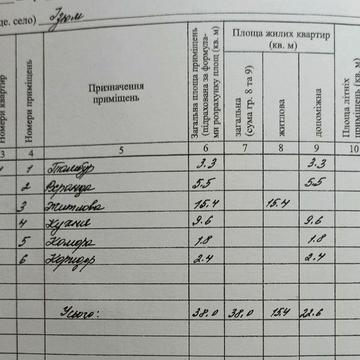 де. село) Ізюм
Номери квартир
Номери приміщень
Призначення
приміщень
Загальна площа приміщень
(підрахована за формула-
ми розрахунку площ (кв. м)
Площа жилих квартир
(кв. м)
загальна
(сума гр. 8 та 9)
житлова
допоміжна
Площа літніх
приміщень (кв. м)
3 4 5 6 7 8 9 10
1 1 Тамбур 3.3 3.3
2 Веранда 5.5 5.5
3 Житлова 15.4 15.4
4 Кухня 9.6 9.6
5 Комора 1.8 1.8
6 Коридор 2.4 2.4
Усього: 38.0 38.0 15.4 22.6